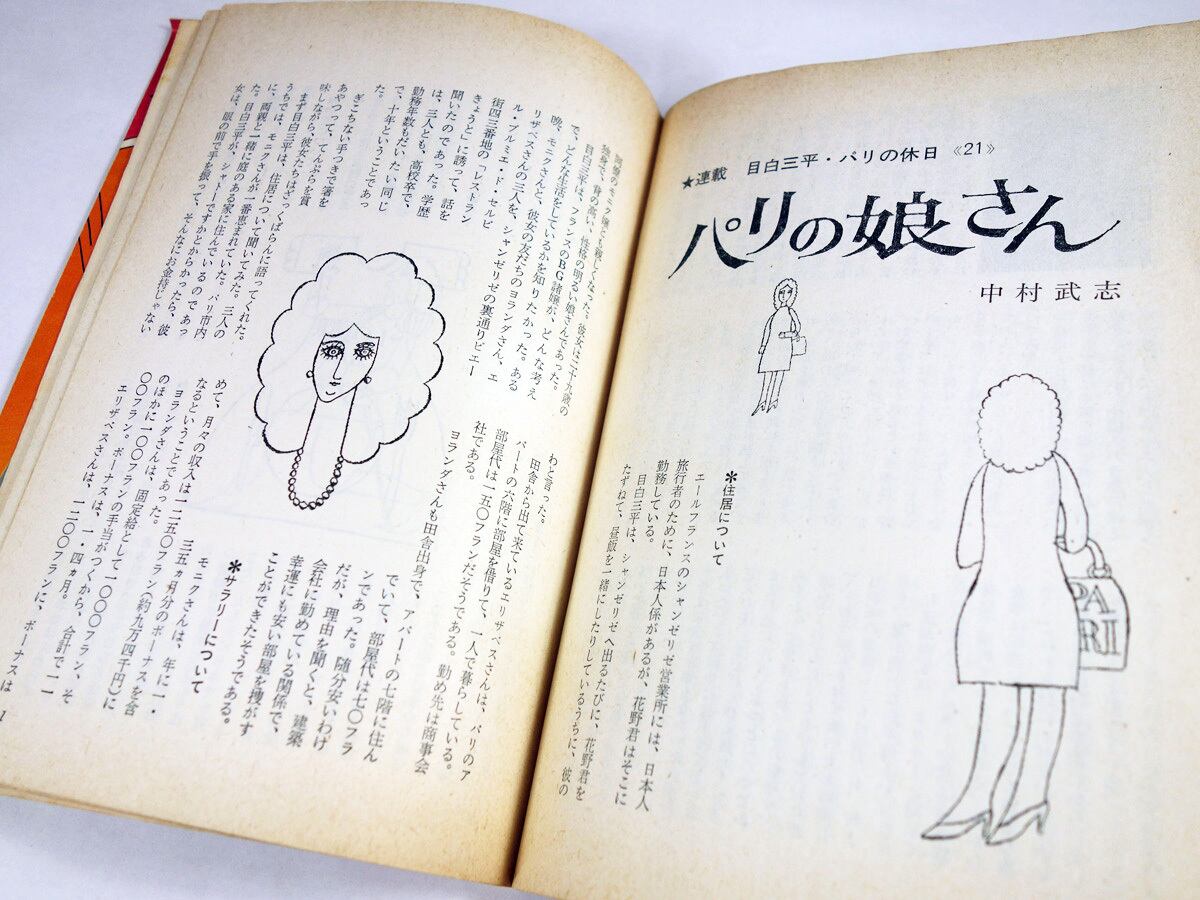 ★連載 目白三平・パリの休日《21》
パリの娘さん
中村武志
PA
RI
✻住居について
エールフランスのシャンゼリゼ営業所には、日本人
旅行者のために、日本人係があるが、花野君はそこに
勤務している。
目白三平は、シャンゼリゼへ出るたびに、花野君を
たずねて、昼飯を一緒にしたりしているうちに、彼の
同僚のモニク嬢にも親しくなった。彼女は二十九歳の
独身で、背の高い、性格の明るい娘さんであった。
目白三平は、フランスのBG諸嬢が、どんな考え
で、どんな生活をしているかを知りたかった。ある
晩、モニクさんと、彼女の友だちのヨランダさん、エ
リザベスさんの三人を、シャンゼリゼの裏通りピエー
ル・プルミエ・ド・セルビ
街四三番地の「レストラン
きょうと」に誘って、話を
聞いたのであった。学歴
は、三人とも、高校卒で、
勤務年数もだいたい同じ
で、十年ということであっ
た。
ぎこちない手つきで箸を
あやつって、てんぷらを賞
味しながら、彼女たちはざっくばらんに語ってくれた。
まず目白三平は、住居について聞いてみた。三人の
うちでは、モニクさんが一番恵まれていた。パリ市内
に、両親と一緒に庭のある家に住んでいるのであっ
た。目白三平が、シャトーですかとからかったら、彼
女は、眼の前で手を振って、そんなにお金持じゃない
わと言った。
田舎から出て来ているエリザベスさんは、パリのア
パートの六階に部屋を借りて、一人で暮らしている。
部屋代は一五〇フランだそうである。勤め先は商事会
社である。
ヨランダさんも田舎出身で、アパートの七階に住ん
でいて、部屋代は七〇フラ
ンであった。随分安いわけ
だが、理由を聞くと、建築
会社に勤めている関係で、
幸運にも安い部屋を捜がす
ことができたそうである。
✻サラリーについて
モニクさんは、年に一・
三五ヵ月分のボーナスを含
めて、月々の収入は一二五〇フラン(約九万四千円)に
なるということであった。
ヨランダさんは、固定給として一〇〇〇フラン、そ
のほかに一〇〇フランの手当がつくから、合計で一一
〇〇フラン。ボーナスは、一・四ヵ月。
エリザベスさんは、一二〇〇フランに、ボーナスは